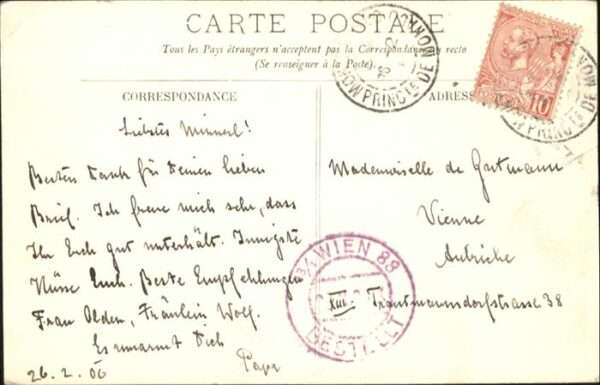 CARTE POSTALE
Tous les Pays étrangers n'acceptent pas la Correspondance au recto
(Se renseigner à la Poste).
CORRESPONDANCE
Liebstes Minnerl!
Besten Dank für Deinen lieben
Brief. Ich freue mich sehr, dass
Ihr Euch gut unterhält. Innigste
Küsse Euch. Beste Empfehlungen
Frau Olden, Fräulein Wolf.
Es umarmt Dich
Papa
26. 2. 06
Mademoiselle de Gutmann
Vienne
Autriche
Trautmannsdorfstrasse 38
10
PRINCTÉ DE
WIEN 88
XIII
BESTELLT